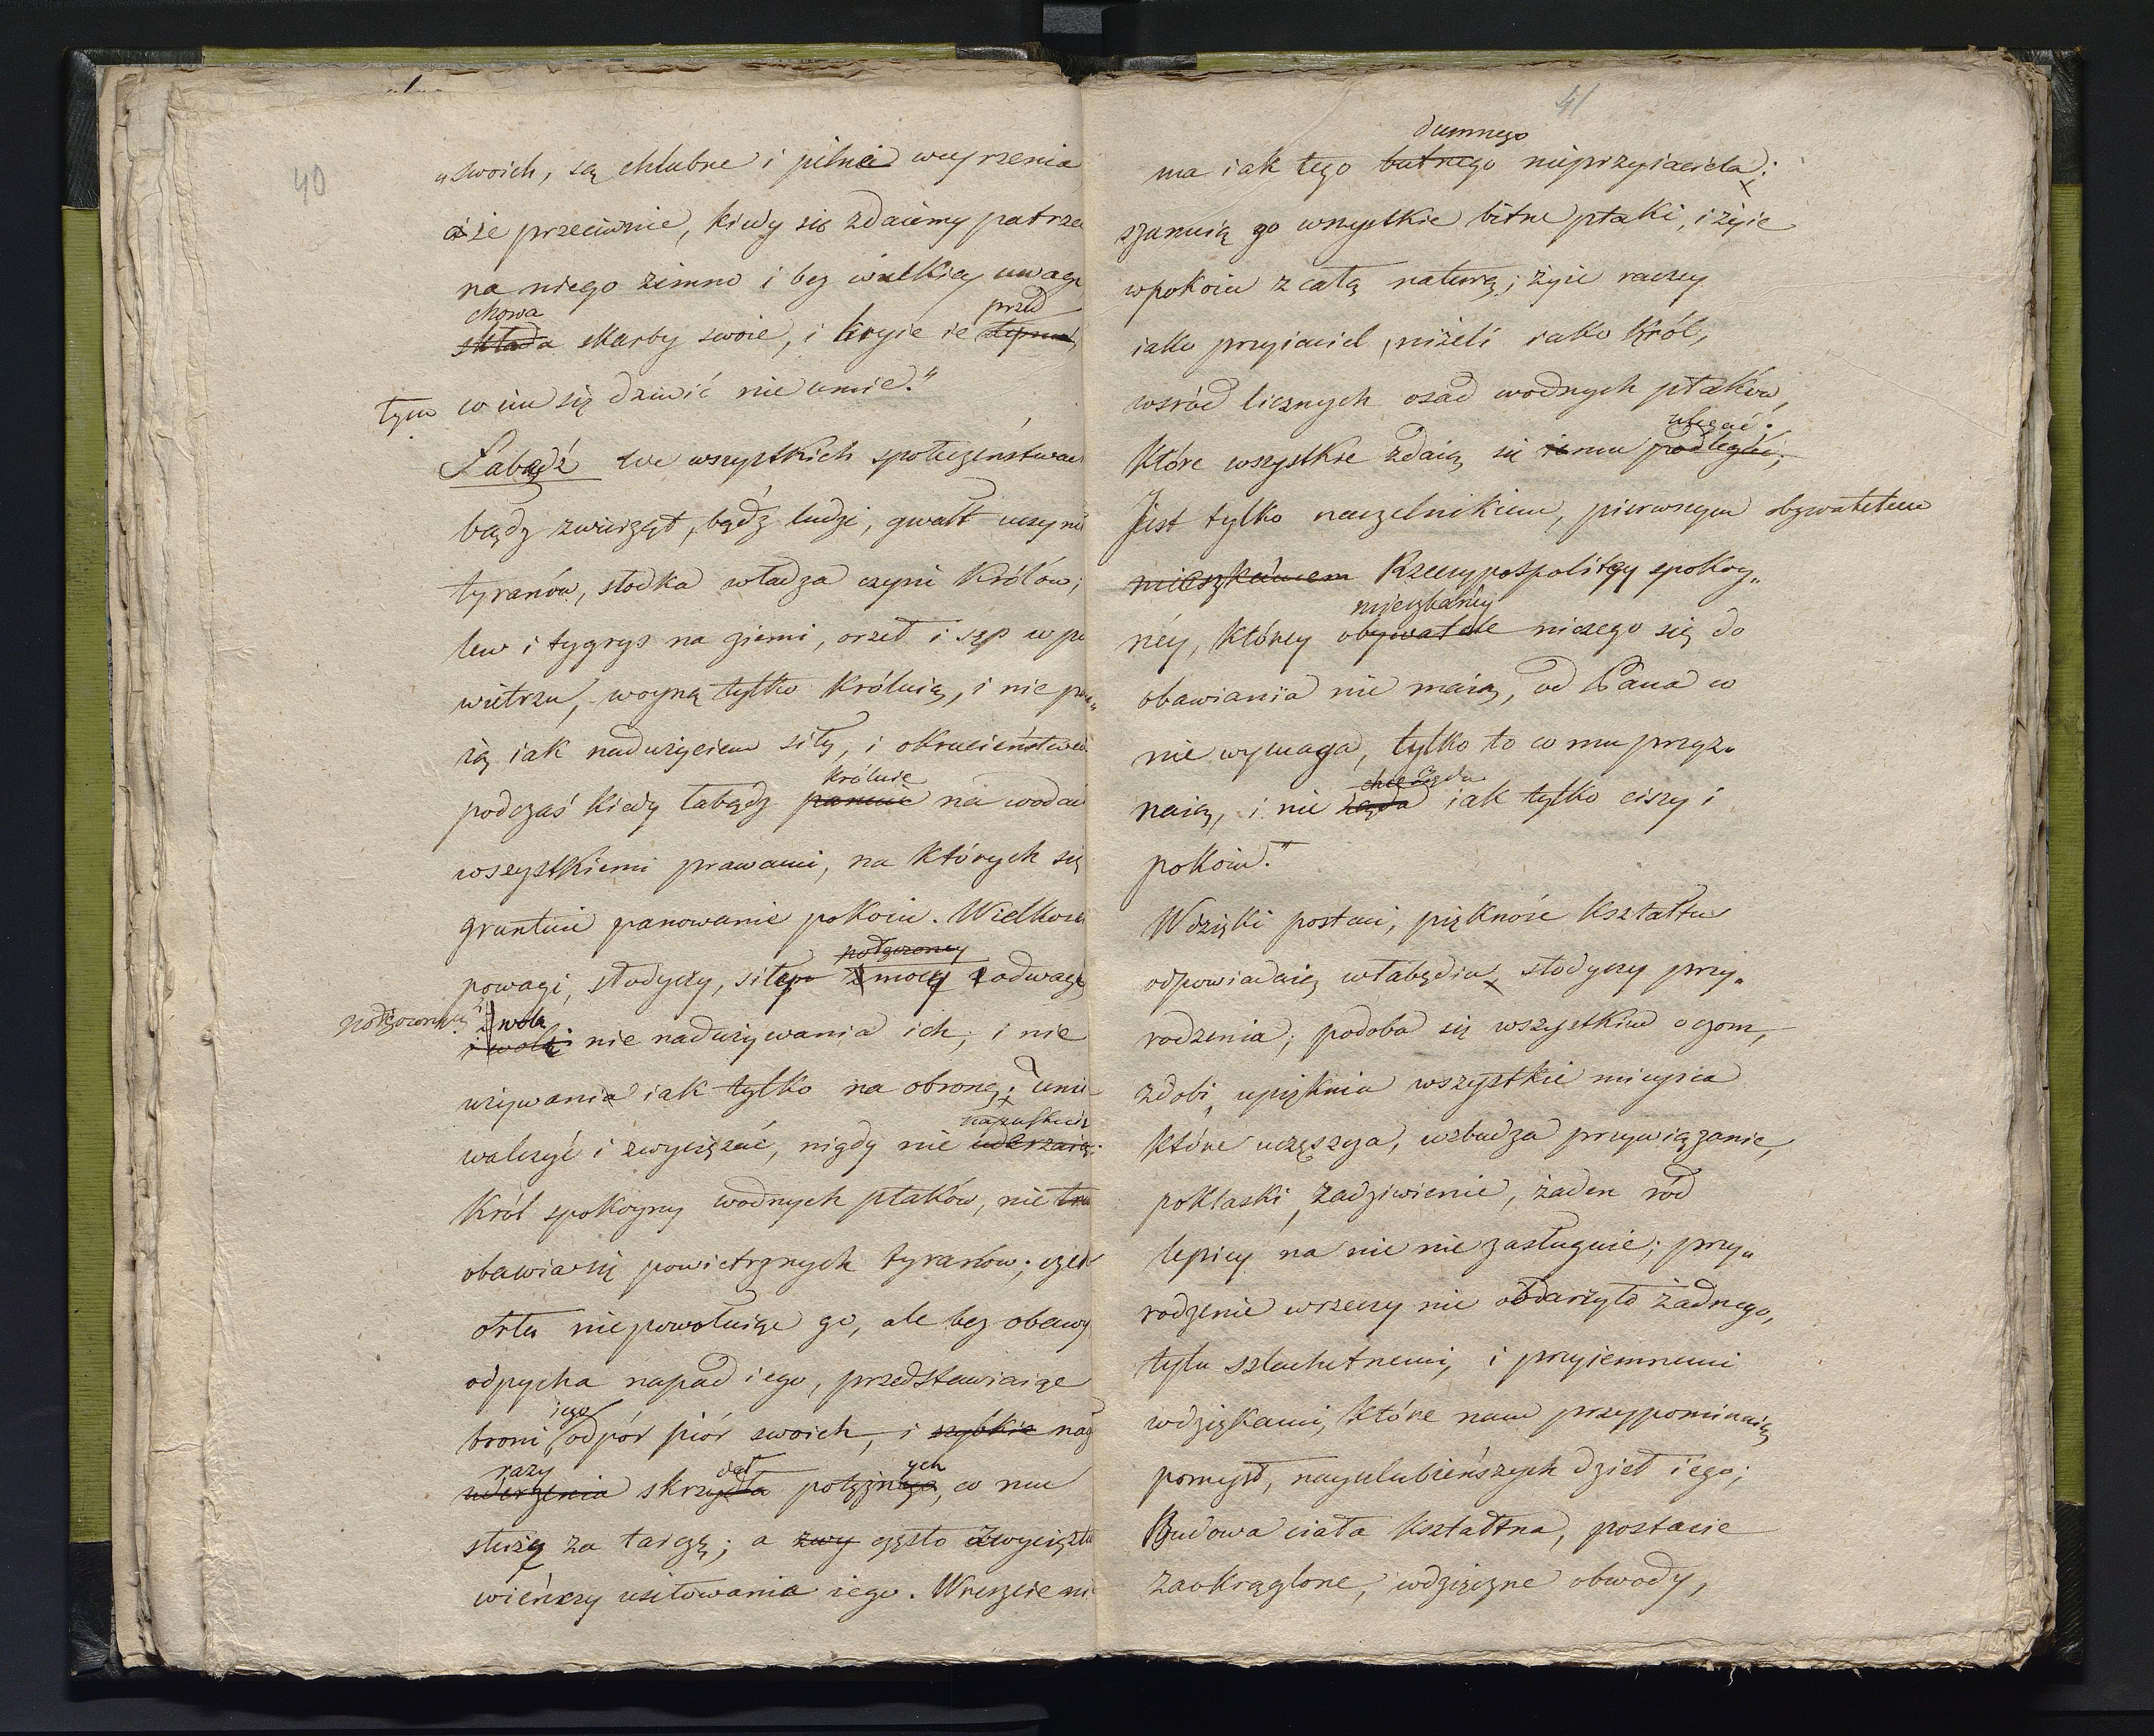 40
„swoich, są chlubne i pilne weyrzenia
a że przeciwnie, kiedy się zdaiemy patrze
na niego zimno i bez wielkiey uwagi
chowa przed
składa skarby swoie, i kryie ie
tym co im się dziwić nie umie."
Łabędź we wszystkich społeczeństwach
bądz zwierząt, bądź ludzi, gwałt uczyni
tyranów, słodka władza czyni Królów;
lew i tygrys na ziemi, orzeł i sęp w po
wietrzu, woyną tylko Króluią, i nie pan„
ią iak nadużyciem siły, i okrucieństwem
króluie
podczas kiedy łabędz panuie na wodach
wszystkiemi prawami, na których się
gruntuie panowanie pokoiu. Wielkości
połączoney
powagi, słodyczy, siły z mocy odwagi
połączoney z wolą
i wolą nie nadużywania ich, i nie
używania iak tylko na obronę; umie
napastuiąc
walczyć i zwyciężać, nigdy nie uderzaiąc.
Król spokoyny wodnych ptaków, nie
obawia się powietrznych tyranów; czeka
orła niepowołuiąc go, ale bez obawy
odpycha napad iego, przedstawiaiąc
iego
broni odpór piór swoich, i szybkie nag
razy deł ych
uderzenia skrzydła potężnego, co mu
służą za tarczę; a zwy często zwycięztwo
wieńczy usiłowania iego. Wreszcie nie
41
dumnego
ma iak tego butnego nieprzyiaciela;
szanuią go wszystkie bitne ptaki, i żyie
w pokoiu z całą naturą; żyie raczey
iako przyiaciel, niżeli iako Król,
wśród licznych osad wodnych ptaków,
ulegać.
które wszystkie zdaią się iemu podlegać;
Jest tylko naczelnikiem, pierwszym obywatelem
mieszkańcem Rzeczypospolitey spokoy„
mieszkańcy
ney, którey obywatele niczego się do
obawiania nie maią, od Pana co
nie wymaga, tylko to co mu przyz„
chce żąda
naią, i nie żąda iak tylko ciszy i
pokoiu."
Wdzięki postaci, piękność kształtu
odpowiadaią w łabędziu, słodyczy przy„
rodzenia; podoba się wszystkim oczom,
zdobi, upięknia wszystkie mieysca
które uczęszcza, wzbudza przywiązanie,
poklaski, zadziwienie, żaden ród
lepiey na nie nie zasługuie; przy„
rodzenie wrzeczy nie obdarzyło żadnego,
tylu szlachetnemi, i przyiemnemi
wdziękami, które nam przypominaią
pomysł, nayulubieńszych dzieł iego;
Budowa ciała kształtna, postacie
zaokrąglone, wdzięczne obwody,